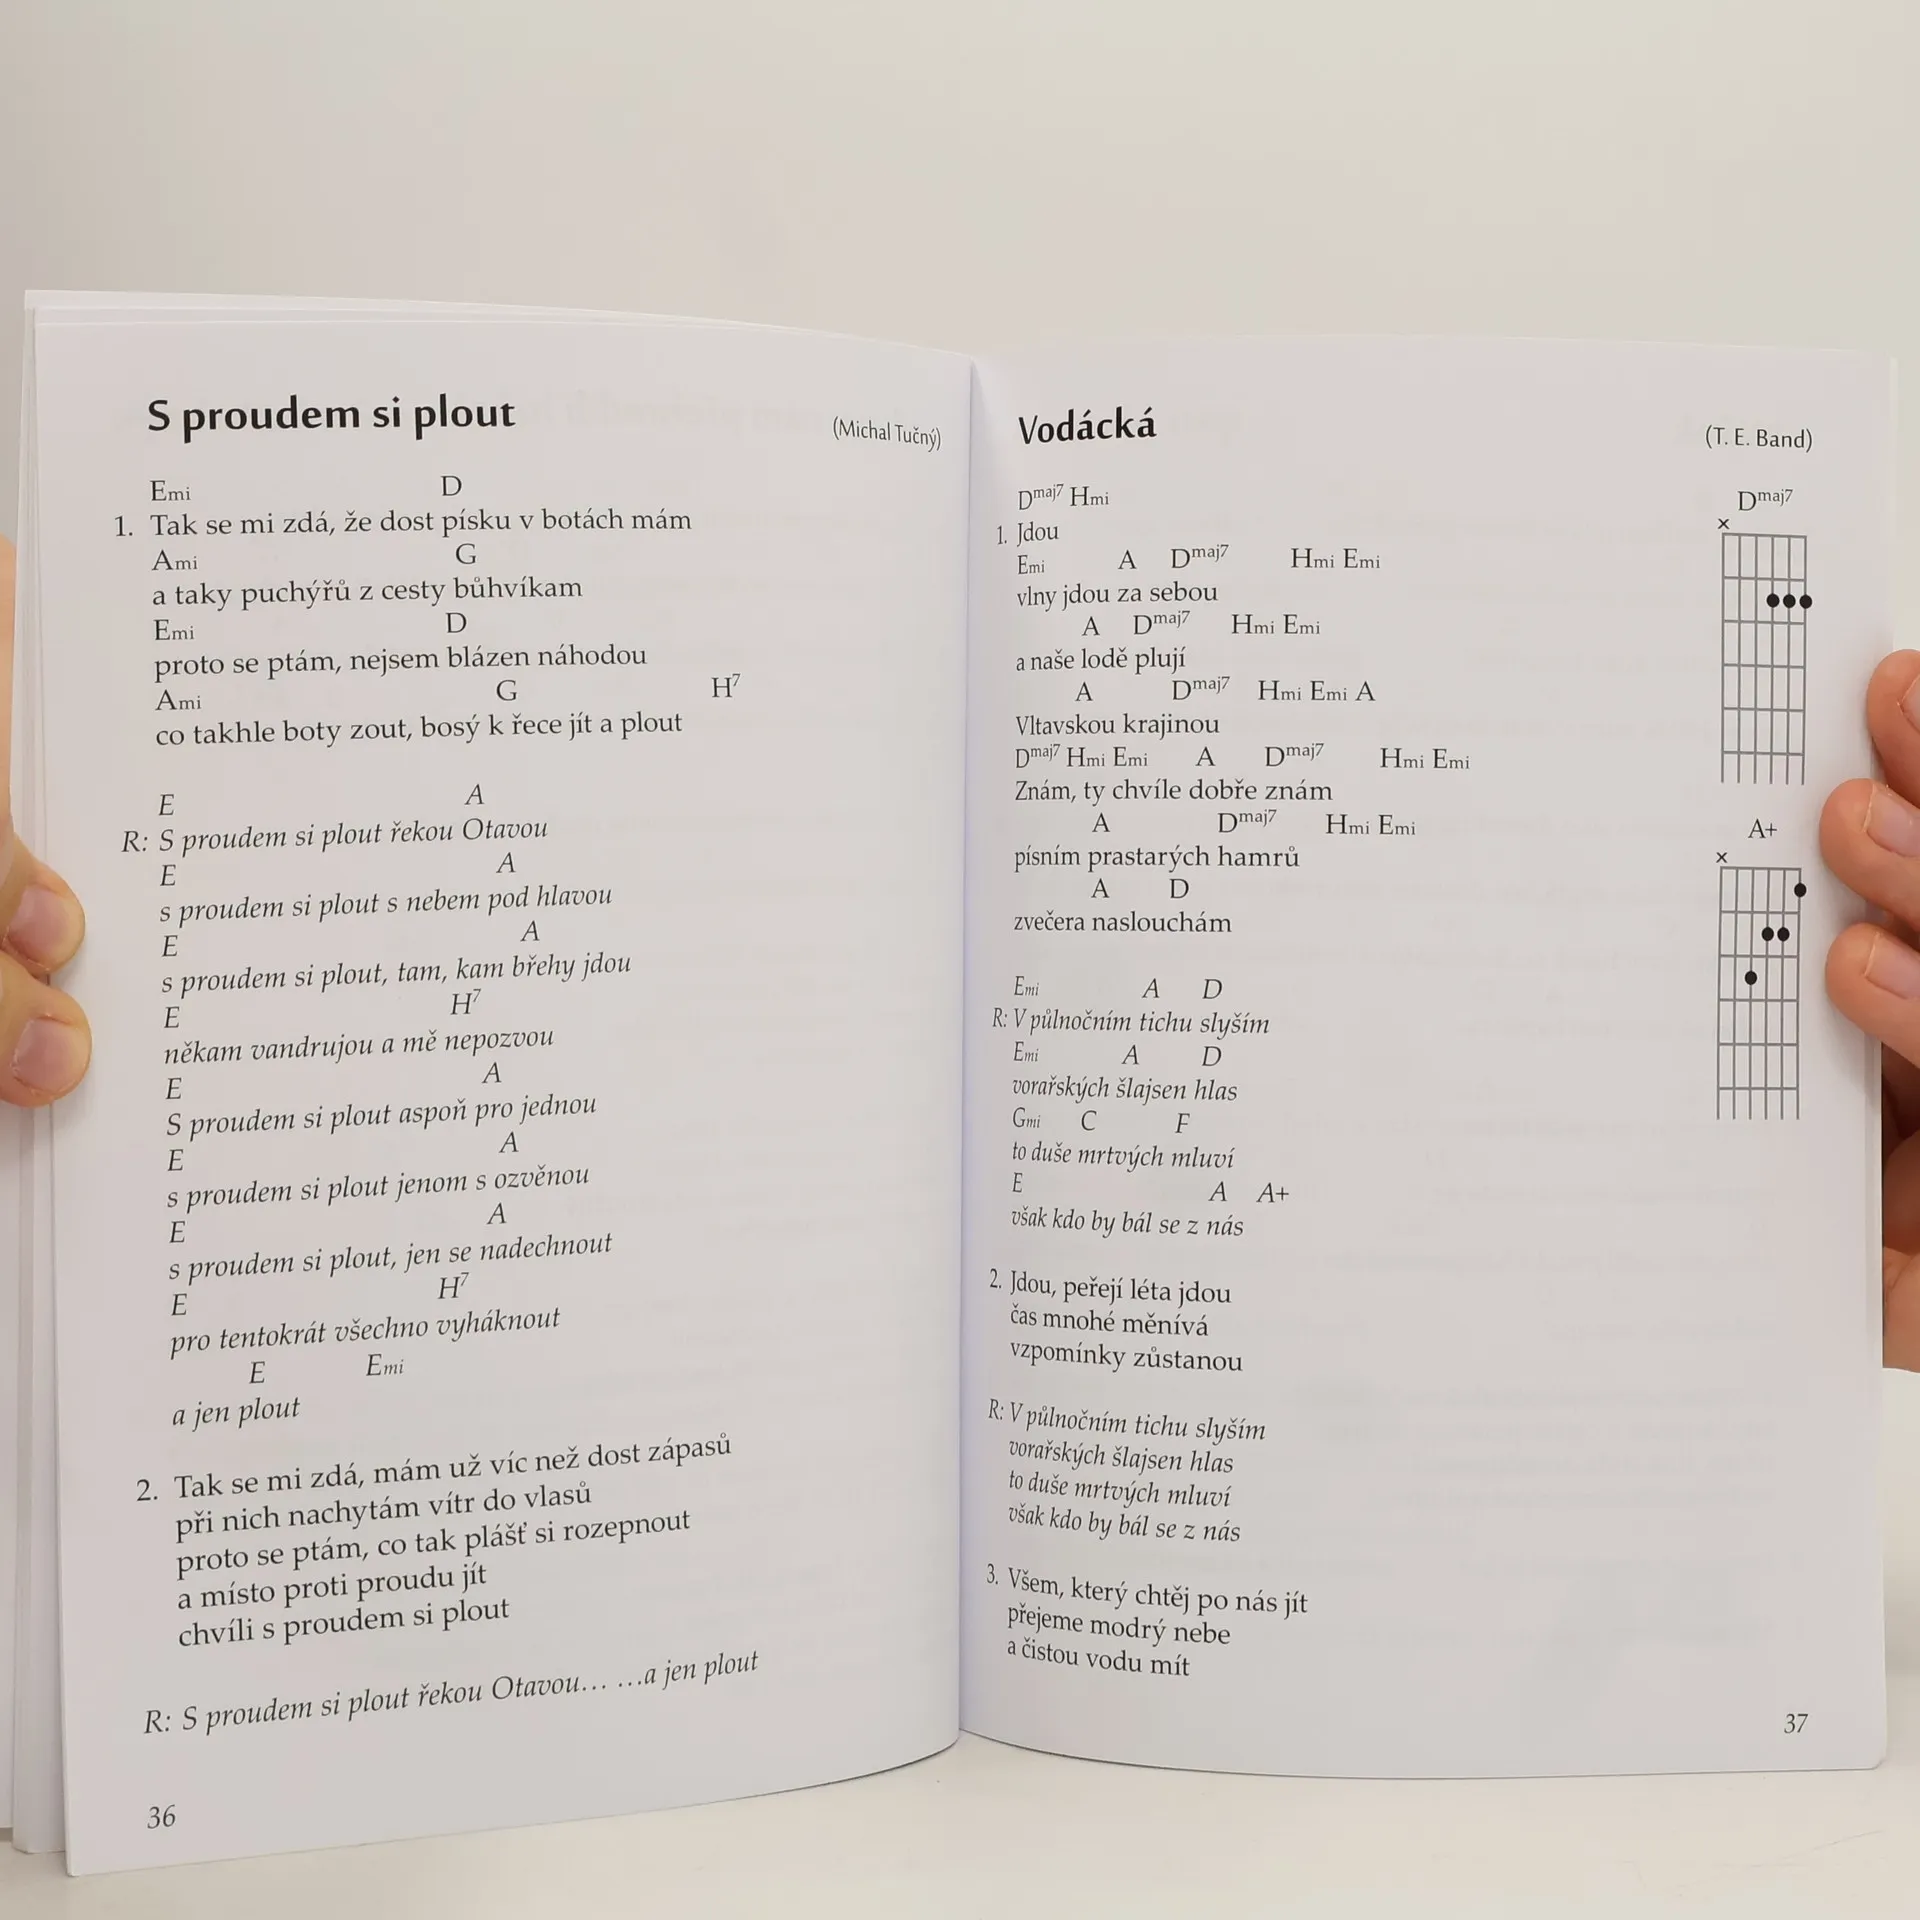 S proudem si plout
(Michal Tučný)
Emi D
1. Tak se mi zdá, že dost písku v botách mám
Ami G
a taky puchýřů z cesty bůhvíkam
Emi D
proto se ptám, nejsem blázen náhodou
Ami G H7
co takhle boty zout, bosý k řece jít a plout
E A
R: S proudem si plout řekou Otavou
E A
s proudem si plout s nebem pod hlavou
E A
s proudem si plout, tam, kam břehy jdou
E H7
někam vandrujou a mě nepozvou
E A
S proudem si plout aspoň pro jednou
E A
s proudem si plout jenom s ozvěnou
E A
s proudem si plout, jen se nadechnout
E H7
pro tentokrát všechno vyháknout
E Emi
a jen plout
2. Tak se mi zdá, mám už víc než dost zápasů
při nich nachytám vítr do vlasů
proto se ptám, co tak plášť si rozepnout
a místo proti proudu jít
chvíli s proudem si plout
R: S proudem si plout řekou Otavou... ...a jen plout
36
Vodácká
(T. E. Band)
Dmaj7 Hmi
1. Jdou
Emi A Dmaj7 Hmi Emi
vlny jdou za sebou
A Dmaj7 Hmi Emi
a naše lodě plují
A Dmaj7 Hmi Emi A
Vltavskou krajinou
Dmaj7 Hmi Emi A Dmaj7 Hmi Emi
Znám, ty chvíle dobře znám
A Dmaj7 Hmi Emi
písním prastarých hamrů
A D
zvečera naslouchám
Emi A D
R: V půlnočním tichu slyším
Emi A D
vorařských šlajsen hlas
Gmi C F
to duše mrtvých mluví
E A A+
však kdo by bál se z nás
2. Jdou, peřejí léta jdou
čas mnohé měnívá
vzpomínky zůstanou
R: V půlnočním tichu slyším
vorařských šlajsen hlas
to duše mrtvých mluví
však kdo by bál se z nás
3. Všem, který chtěj po nás jít
přejeme modrý nebe
a čistou vodu mít
Dmaj7
x
A+
x
37